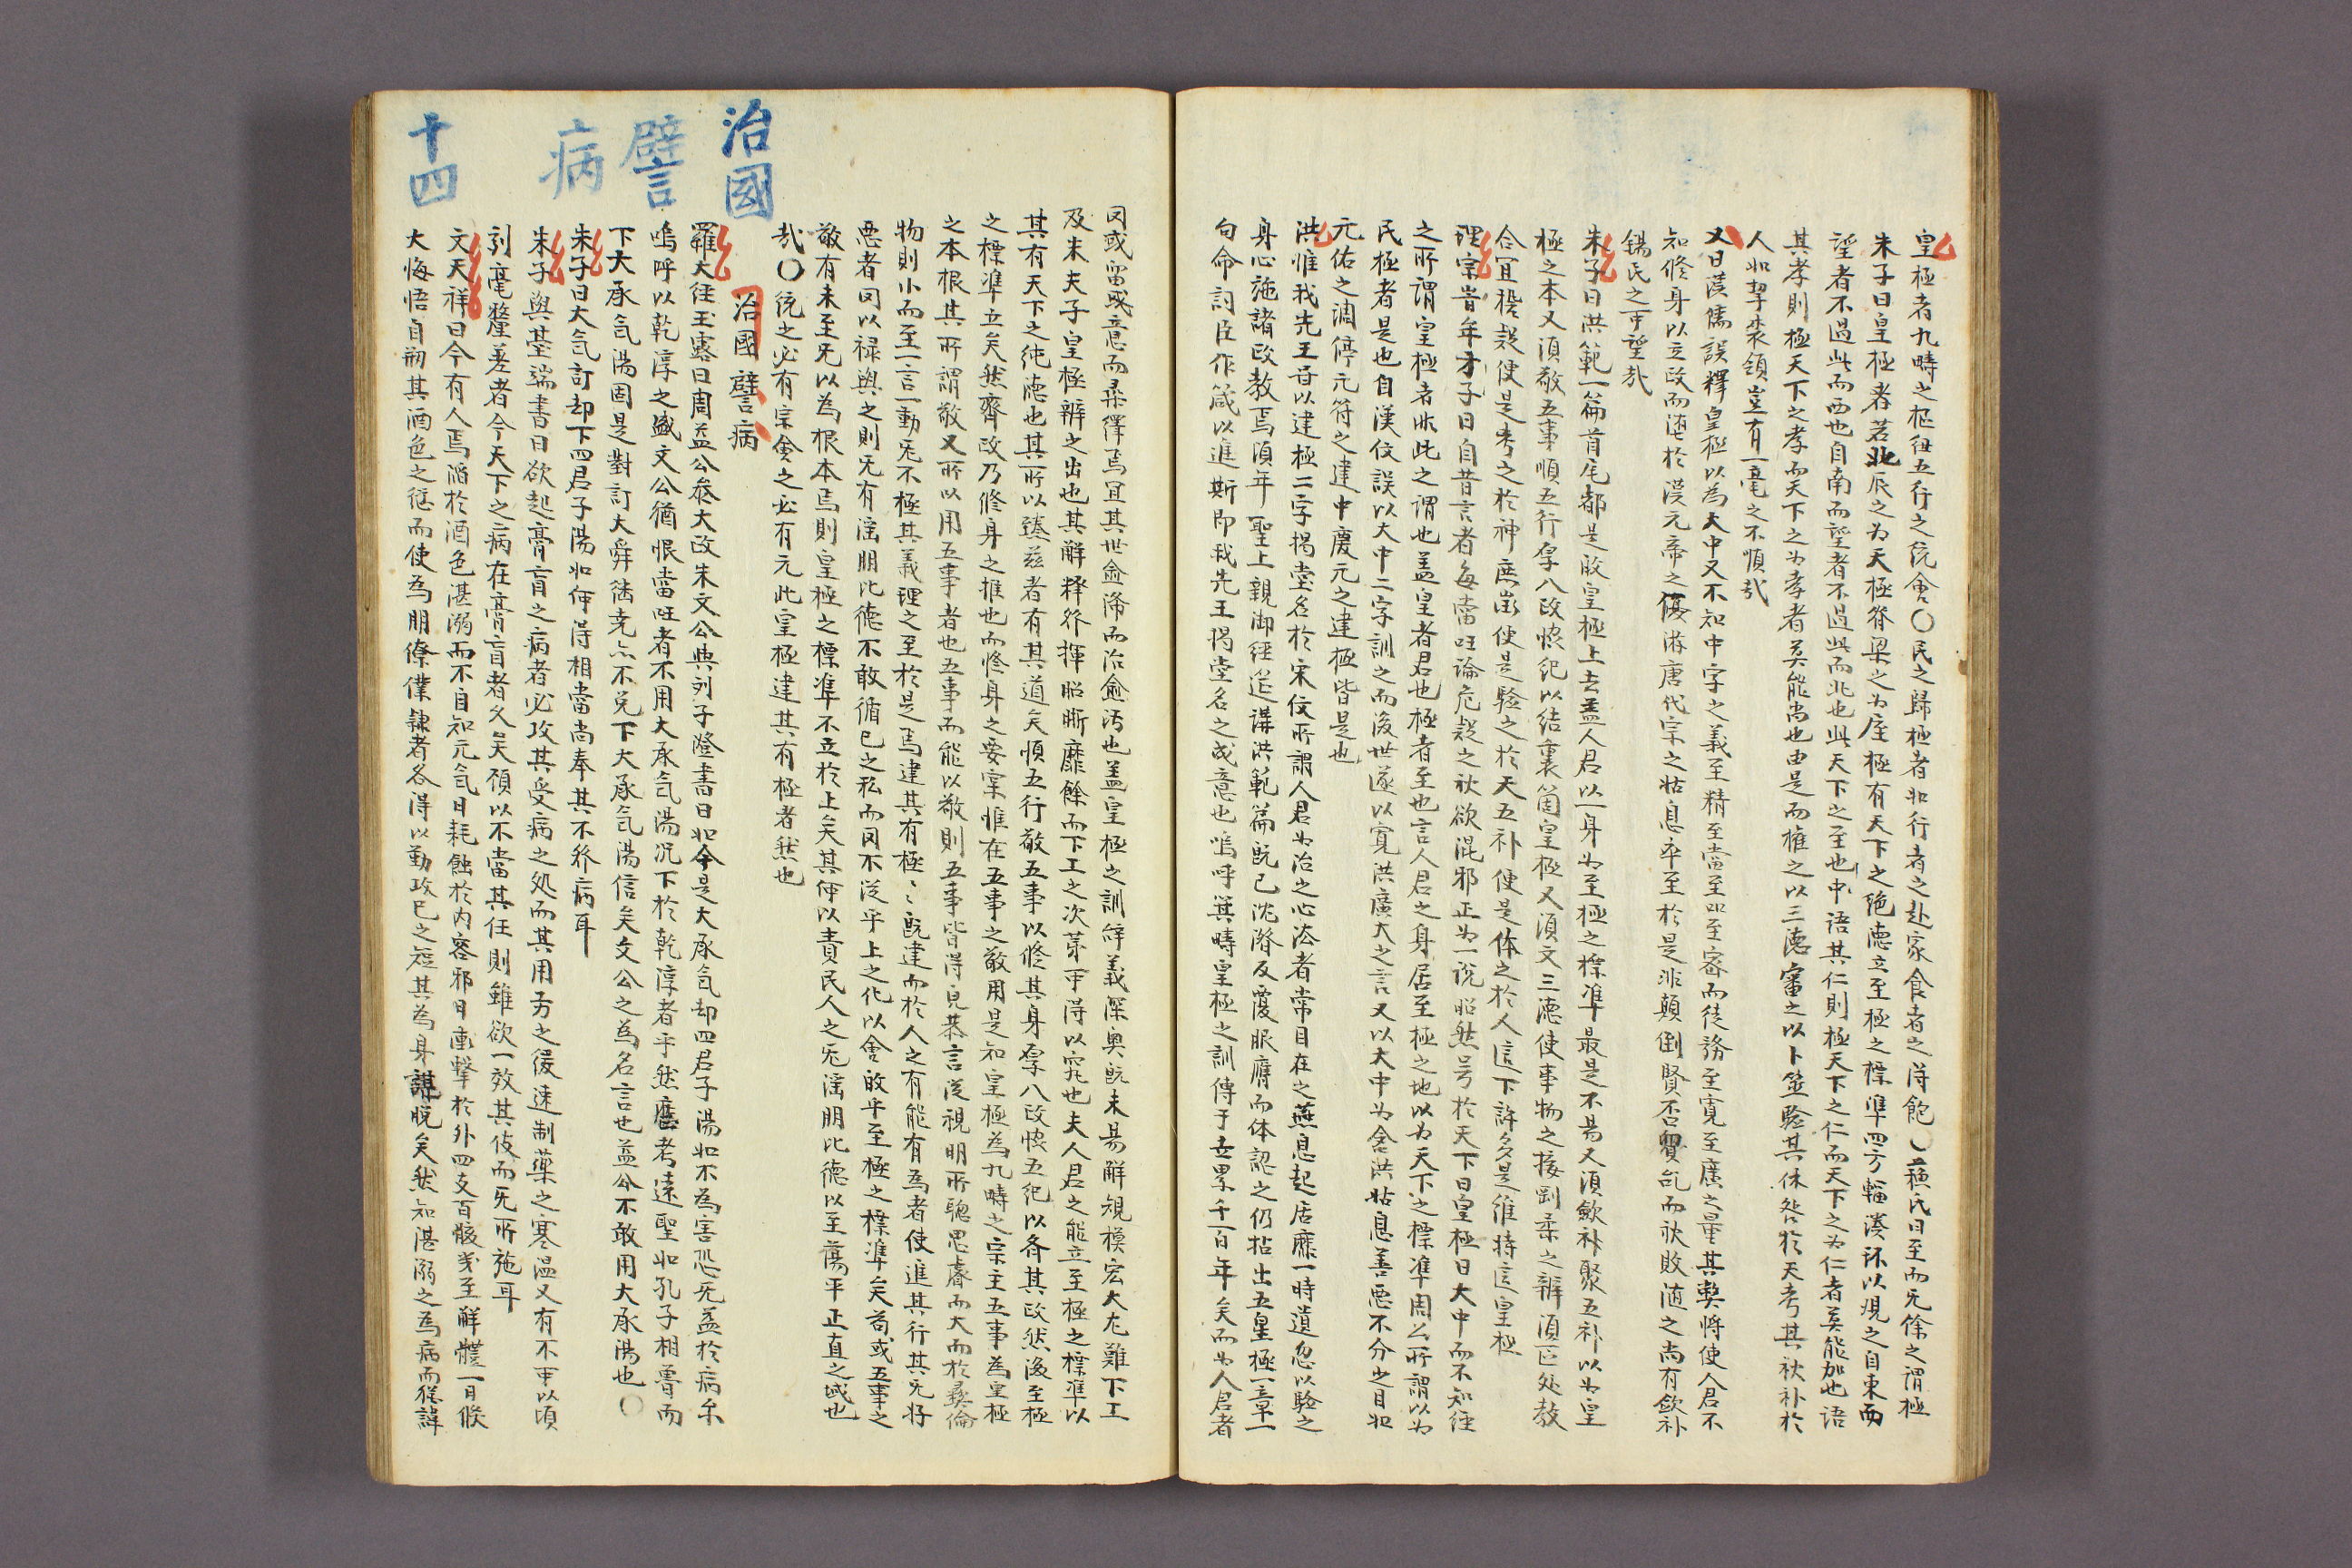 皇極者九疇之樞紐五行之統會〇民之歸極者如行者之赴家食者之得飽〇蘓氏曰至而无余之謂極
朱子曰皇極者若北辰之为天極脊梁之为屋極有天下之絶德立至極之標準四方輻湊环以覌之自東而
望者不過此而西也自南而望者不過此而北也此天下之至也中語其仁則極天下之仁而天下之为仁者莫能加也語
其孝則極天下之孝而天下之为孝者莫能尚也由是而權之以三德審之以卜筮驗其休咎於天考其秋补於
人如挈裘領豈有一毫之不順㢤
又曰漢儒誤釋皇極以為大中又不知中字之義至精至當至公至密而徒務至寛至廣之量其弊將使人君不
知修身以立政而墮於漢元帝之優游唐代宗之姑息卒至於是非顛倒賢否貿乱而秋敗随之尚有歛补
錫民之可望㢤
朱子曰洪範一篇首尾都是皈皇極上去盖人君以一身为至極之標準最是不易又湏歛补聚五补以为皇
極之本又湏敬五事順五行厚八政恊纪以结裹箇皇極又湏乂三德使事物之接剛柔之辨湏區处教
合宜稽疑便是考之於神庶徵便是驗之於天五补便是体之於人這下許多是維持這皇極
理宗昔年才子曰自昔言者每當旺論危疑之秋欲混邪正为一説昭然号於天下曰皇極曰大中而不知徃
之所谓皇極者非此之谓也盖皇者君也極者至也言人君之身居至極之地以为天下之標凖周公所谓以为
民極者是也自漢仗誤以大中二字訓之而後世遂以寛洪廣大之言又以大中为含洪姑息善悪不分少目如
元佑之調停元符之建中慶元之建極皆是也
洪惟我先王甞以建極二字揭堂名於宋仗所謂人君为治之心法者常目在之燕息起居靡一時遺忽以驗之
身心施諸政教焉頃年聖上親御經筵講洪範篇既已沈潛反覆服膺而体認之仍拈出五皇極一章一
句命詞臣作箴以進斯即我先王揭堂名之成意也嗚呼箕疇皇極之訓傳于去累千百年矣而为人君者
罔或留戓意而尋繹焉冝其世愈降而治愈汚也盖皇極之訓辝義深奥既未易解規模宏大尤難下工
及朱夫子皇極辨之出也其解釋發揮昭晣靡餘而下工之次第可得以究也夫人君之能立至極之標準以
其有天下之純德也其所以臻茲者有其道矣順五行敬五事以修其身厚八政恊五纪以齐其政然後至極
之標準立矣然齊政乃修身之推也而修身之要宲惟在五事之敬用是知皇極為九疇之宗主五事為皇極
之本根其所謂敬又所以用五事者也五事而能以敬則五事皆得皃恭言從視明所聰思睿而大而於彛倫
物則小而至一言一動旡不極其義理之至於是焉建其有極〻既建而於人之有能有為者使進其行其旡好
悪者罔以禄與之則旡有淫朋比德不敢循已之私而罔不從乎上之化以會皈乎至極之標準矣苟或五事之
敬有未至旡以為根本焉則皇極之標準不立於上矣其何以責民人之旡淫朋比德以至蕩平正直之域也
㢤〇统之必有宗會之必有元此皇極建其有極者然也
治國
譬言
病
十四
治國譬病
羅大経玉露曰周益公叅大政朱文公與列子澄書曰如今是大承氣却四君子湯如不為害恐旡益於病尒
嗚呼以乾淳之盛文公猶恨當旺者不用大承氣湯况下於乾淳者乎然歷考逺聖如孔子相魯而
下大承氣湯固是對訂大舜徳尭亦不免下大承氣湯信矣文公之為名言也益公不敢用大承湯也〇
朱子曰大氣訂却下四君子湯如何得相當尚奉其不發病耳
朱子與基端書曰欲起膏肓之病者必攻其受病之処而其用劳之緩速制藥之寒温又有不可以頃
刻毫釐差者今天下之病在膏肓者久矣顧以不當其任則雖欲一效其伎而旡所施耳
文天祥曰今有人焉滔於酒色湛溺而不自知元氣日耗蝕於内容邪日衝撃於外四支百骸㡬至解體一日倐
大悔悟自刱其酒色之愆而使為朋僚僕隷者各得以勤攻已之短其為身謀晥矣然知湛溺之為病而猶諱